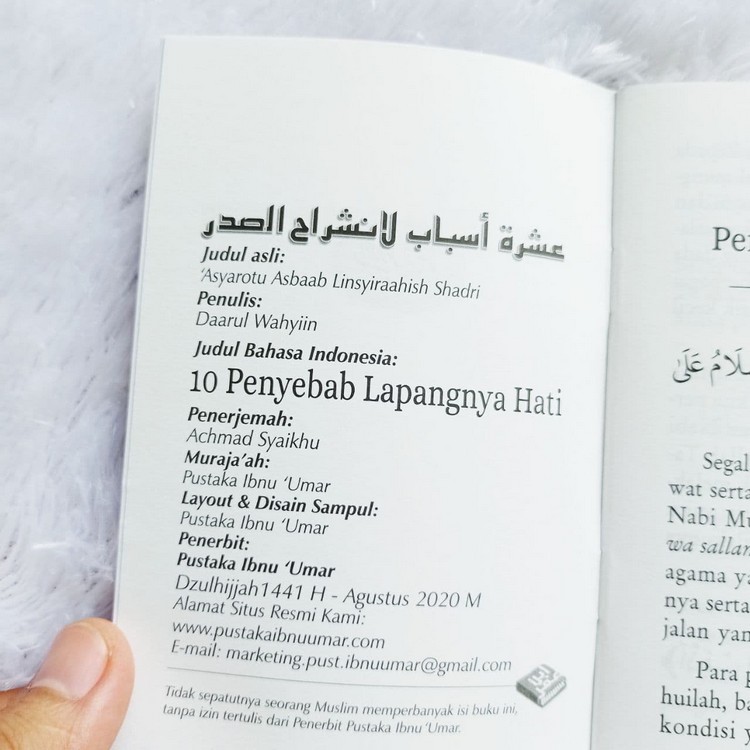 عشرة أسباب لانشراح الصدر
Judul asli:
'Asyarotu Asbaab Linsyiraahish Shadri
Penulis:
Daarul Wahyiin
Judul Bahasa Indonesia:
10 Penyebab Lapangnya Hati
Penerjemah:
Achmad Syaikhu
Muraja'ah:
Pustaka Ibnu 'Umar
Layout & Disain Sampul:
Pustaka Ibnu 'Umar
Penerbit:
Pustaka Ibnu 'Umar
Dzulhijjah1441 H - Agustus 2020 M
Alamat Situs Resmi Kami:
www.pustakaibnuumar.com
E-mail: marketing.pust.ibnuumar@gmail.com
Tidak sepatutnya seorang Muslim memperbanyak isi buku ini,
tanpa izin tertulis dari Penerbit Pustaka Ibnu 'Umar.
عَلَى
Segal
wat serta
Nabi Mu
wa sallam
agama ya
nya serta
jalan yan
Para p
huilah, ba
kondisi y